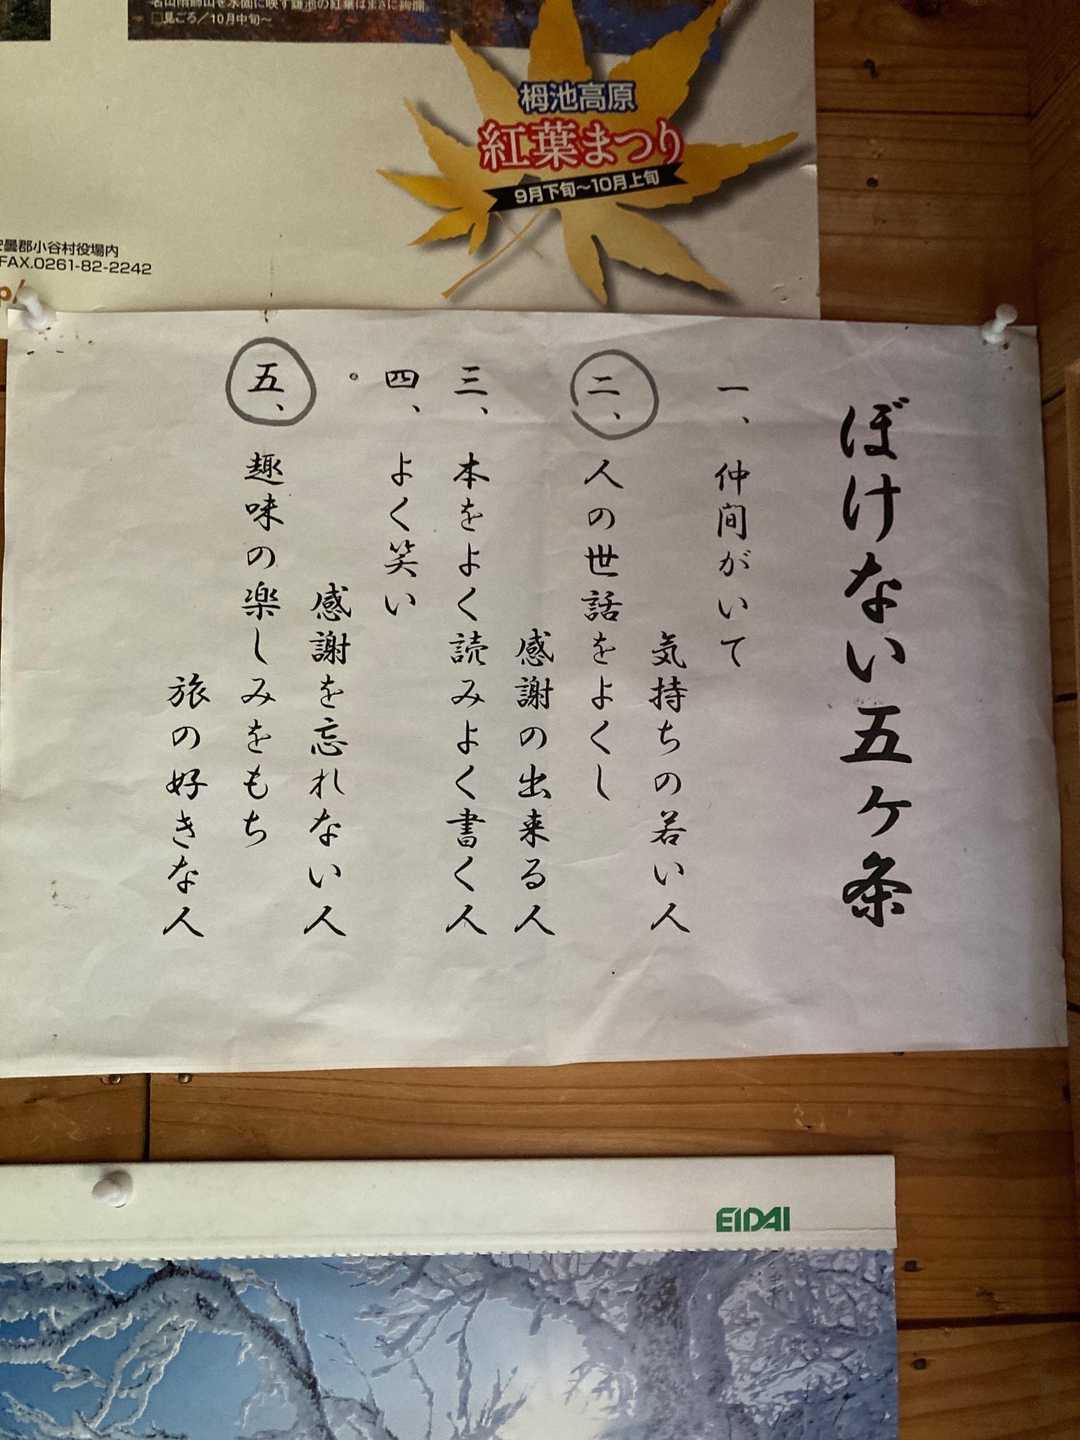 名山雨飾山を水面に映す鎌池の紅葉はまさに絢爛
□見ごろ/10月中旬~
栂池高原
紅葉まつり
9月下旬~10月上旬
安曇郡小谷村役場内
FAX.0261-82-2242
p/
ぼけない五ヶ条
一、仲間がいて
気持ちの若い人
二、人の世話をよくし
感謝の出来る人
三、本をよく読みよく書く人
四、よく笑い
感謝を忘れない人
五、趣味の楽しみをもち
旅の好きな人
EIDAI